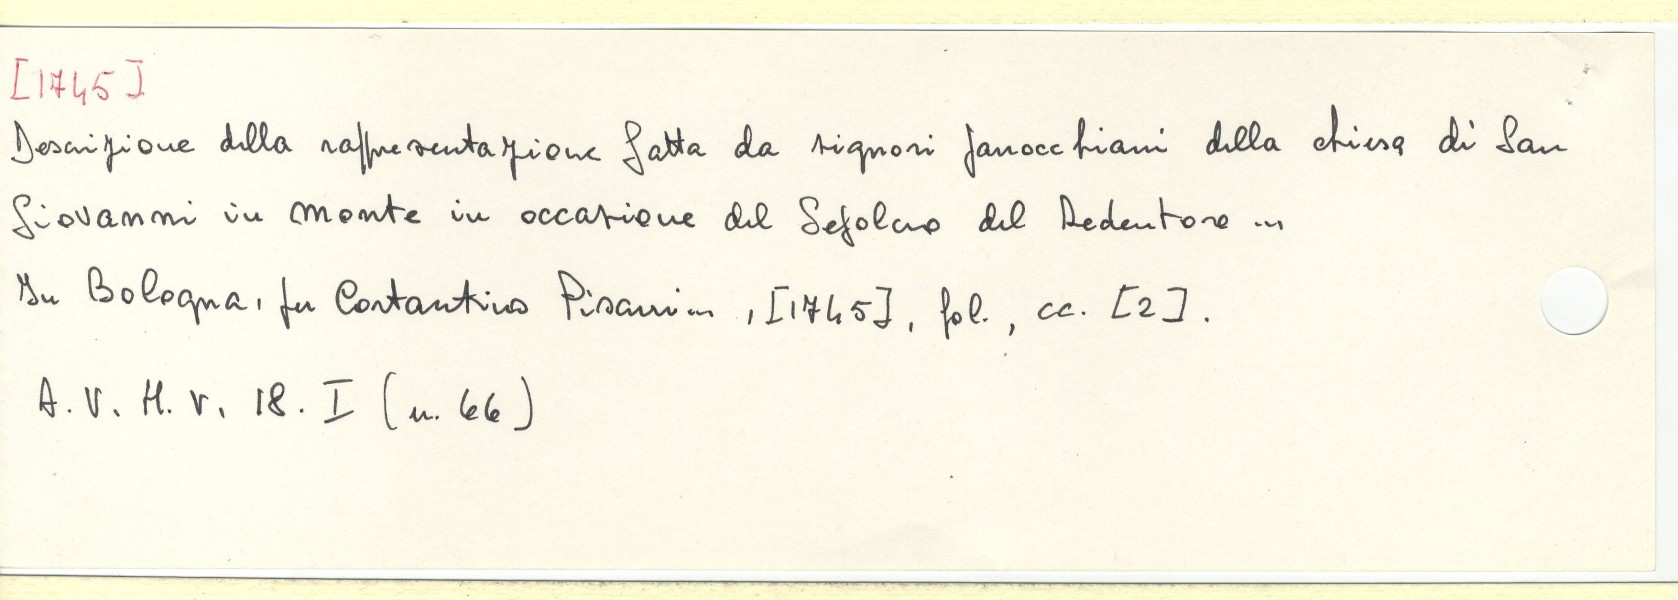 [1745]
Descrizione della rappresentazione fatta da signori parocchiani della chiesa di San
Giovanni in monte in occasione del Sepolcro del Redentore ...
In Bologna, per Costantino Pisarri ..., [1745], fol., cc. [2].
A.V. H. V. 18. I (n. 66)